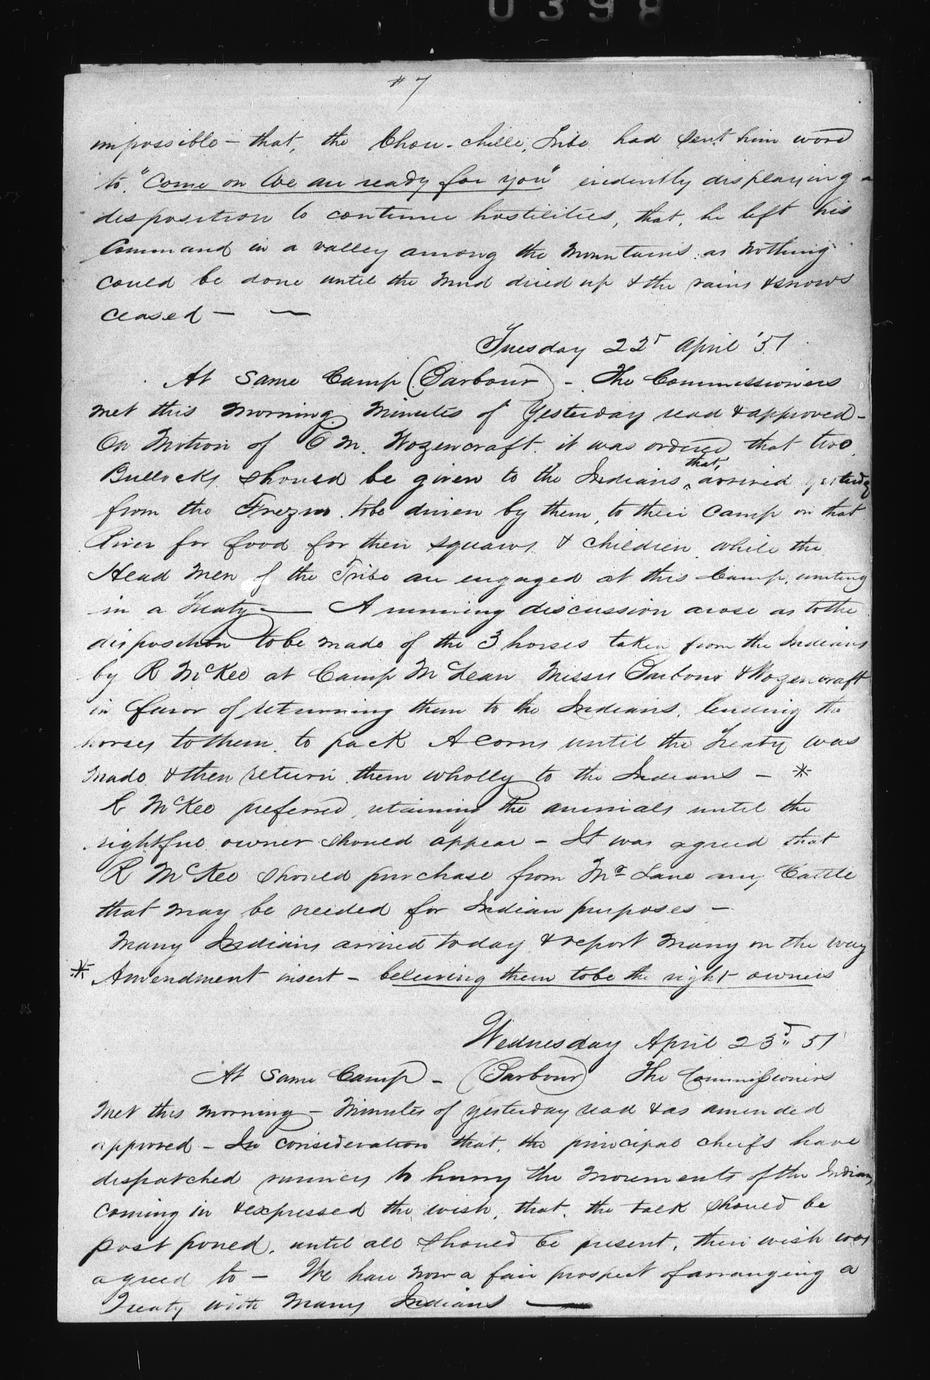 0398
#7
impossible - that, the Chou-chille, Tribe had sent him word
to, "Come on We are ready for you" evidently displaying a
disposition to continue hostilities, that, he left his
Command in a valley among the Mountains as nothing
could be done until the mud dried up & the rains & snows
ceased -
Tuesday 22d April '51
At Same Camp (Barbour) - The Commissioners
met this morning Minutes of Yesterday read & approved -
On Motion of O M. Wozencraft. it was ordered that two
Bullocks should be given to the Indians, that, arrived yesterday
from the Frezno, to be driven by them, to their Camp on that
River for food for their squaws & children, while the
Head Men of the Tribe are engaged at this Camp, uniting
in a Treaty — A running discussion arose as to the
disposition to be made of the 3 horses taken from the Indians
by R McKee at Camp McLean Messrs Barbour & Wozencraft
in favor of returning them to the Indians, lending the
horses to them, to pack Acorns until the Treaty was
made & then return them wholly to the Indians - *
R McKee preferred, retaining the animals until the
rightful owner should appear - It was agreed that
R McKee should purchase from Mr Lane any Cattle
that may be needed for Indian purposes -
Many Indians arrived today & report many on the way
* Amendment insert - believing them to be the right owners
Wednesday April 23d 51
At Same Camp - (Barbour) The Commissioners
met this morning - Minutes of yesterday read & as amended
approved - In consideration that, the principal cheifs have
dispatched runners to hurry the movements of the Indians
coming in & expressed the wish, that, the talk should be
post poned, until all should be present, their wish was
agreed to - We have now a fair prospect of arranging a
Treaty with Many Indians —